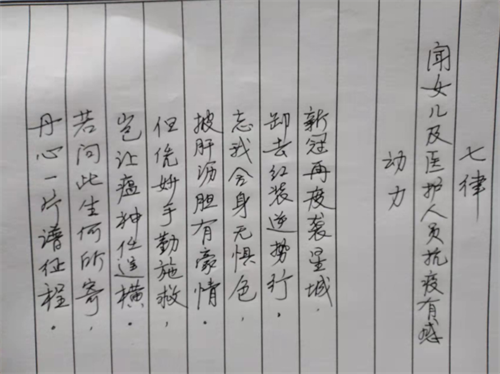 七律
闻女儿及医护人员抗疫有感
动力
新冠再度袭星城,
卸去红装逆势行.
忘我舍身无惧色,
披肝沥胆有豪情.
但凭妙手勤施救,
岂让瘟神任逞横.
若问此生何所寄,
丹心一片谱征程.